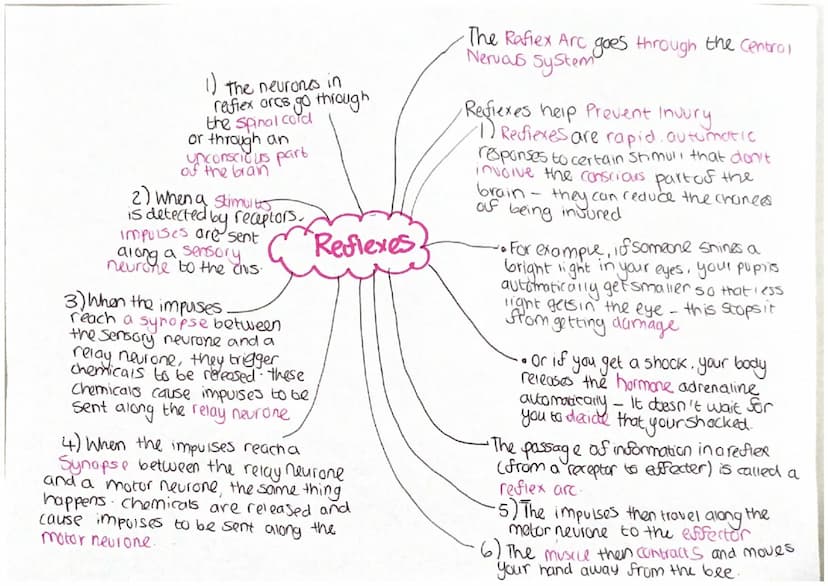 Reflexes
The Reflex Arc goes through the Central
Nervous System
Reflexes help Prevent Injury
1) Reflexes are rapid, automatic
responses to certain stimuli that don't
involve the conscious part of the
brain - they can reduce the chances
of being injured
• For example, if someone shines a
bright light in your eyes, your pupils
automatically get smaller so that less
light gets in the eye - this stops it
from getting damage
• Or if you get a shock, your body
releases the hormone adrenaline
automatically - It doesn't wait for
you to decide that your shocked.
The passage of information in a reflex
(from a receptor to effecter) is called a
reflex arc.
1) The neurones in
reflex arcs go through
the spinal cord
or through an
unconscious part
of the brain
2) When a stimulus
is detected by receptors,
impulses are sent
along a sensory
neurone to the cns.
3) When the impulses
reach a synapse between
the sensory neurone and a
relay neurone, they trigger
chemicals to be released. These
chemicals cause impulses to be
sent along the relay neurone
4) When the impulses reach a
Synapse between the relay neurone
and a motor neurone, the same thing
happens. Chemicals are released and
cause impulses to be sent along the
motor neurone.
5) The impulses then travel along the
motor neurone to the effector
6) The muscle then contracts and moves
your hand away from the bee.